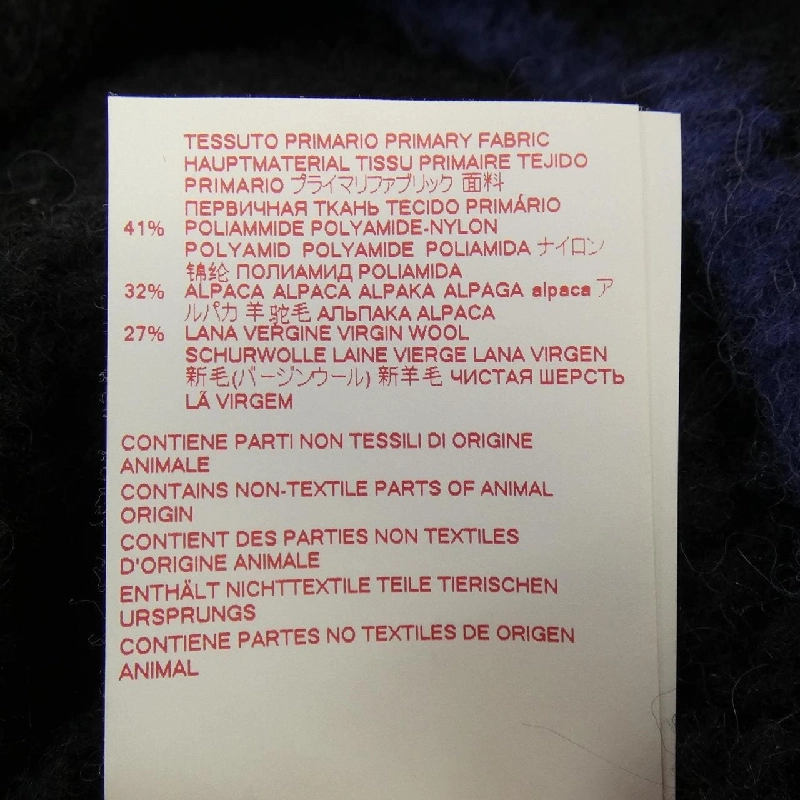 TESSUTO PRIMARIO PRIMARY FABRIC
HAUPTMATERIAL TISSU PRIMAIRE TEJIDO
PRIMARIO プライマリファブリック 面料
ПЕРВИЧНАЯ ТКАНЬ TECIDO PRIMÁRIO
41% POLIAMMIDE POLYAMIDE-NYLON
POLYAMID POLYAMIDE POLIAMIDA ナイロン
锦纶 ПОЛИАМИД POLIAMIDA
32% ALPACA ALPACA ALPAKA ALPAGA alpaca ア
ルパカ 羊驼毛 АЛЬПАКА ALPACA
27% LANA VERGINE VIRGIN WOOL
SCHURWOLLE LAINE VIERGE LANA VIRGEN
新毛(バージンウール) 新羊毛 ЧИСТАЯ ШЕРСТЬ
LÃ VIRGEM
CONTIENE PARTI NON TESSILI DI ORIGINE
ANIMALE
CONTAINS NON-TEXTILE PARTS OF ANIMAL
ORIGIN
CONTIENT DES PARTIES NON TEXTILES
D'ORIGINE ANIMALE
ENTHÄLT NICHTTEXTILE TEILE TIERISCHEN
URSPRUNGS
CONTIENE PARTES NO TEXTILES DE ORIGEN
ANIMAL